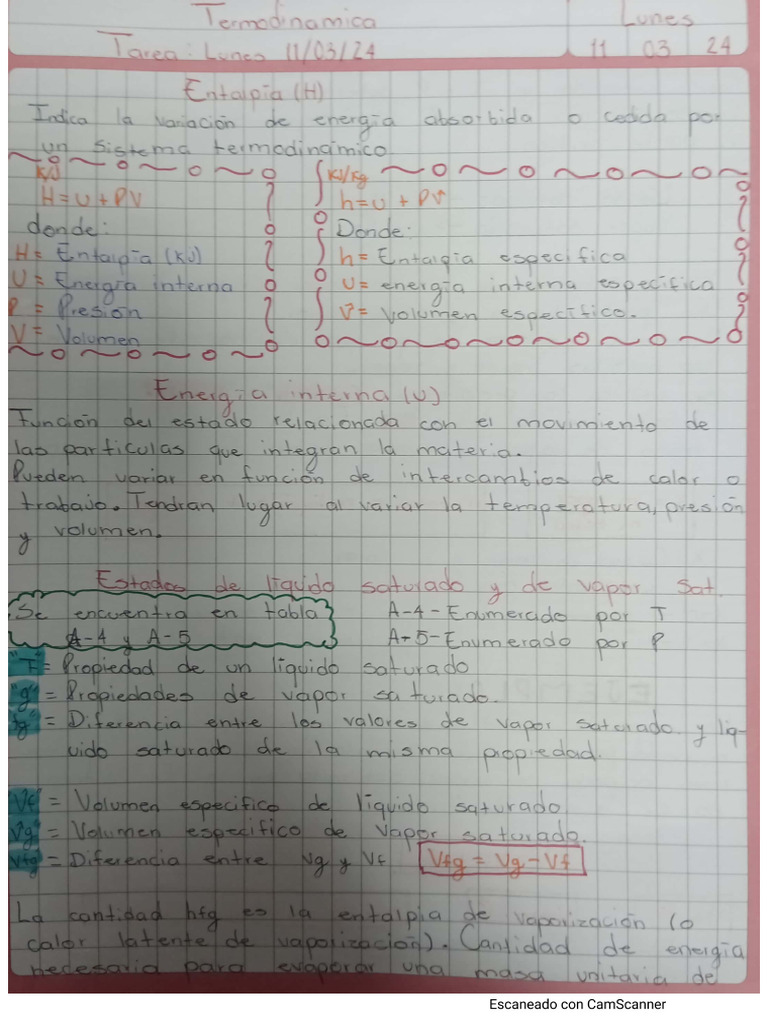 Termodinamica
Lunes
Tarea: Lunes 11/03/24
11 03 24
Entalpia (H)
Indica la variación de energia absorbida o cedida por
un sistema termodinamico.
KJ
H = U + PV
donde:
H = Entalpia (KJ)
U = Energia interna
P = Presion
V = Volumen
KJ/Kg
h = u + Pv
Donde:
h = Entalpia especifica
u = energia interna especifica
v = volumen especifico.
Energia interna (U)
Función del estado relacionada con el movimiento de
las particulas que integran la materia.
Pueden variar en función de intercambios de calor o
trabajo. Tendran lugar al variar la temperatura, presión
y volumen.
Estados de liquido saturado y de vapor sat.
Se encuentra en tabla
A-4 y A-5
A-4-Enumerado por T
A-5-Enumerado por P
"f" = Propiedad de un liquido saturado
"g" = Propiedades de vapor saturado.
"fg" = Diferencia entre los valores de vapor saturado y liq-
uido saturado de la misma propiedad.
"Vf" = Volumen especifico de liquido saturado
"Vg" = Volumen especifico de vapor saturado.
"Vfg" = Diferencia entre Vg y Vf
Vfg = Vg - Vf
La cantidad hfg es la entalpia de vaporización (o
calor latente de vaporización). Cantidad de energia
necesaria para evaporar una masa unitaria de
Escaneado con CamScanner